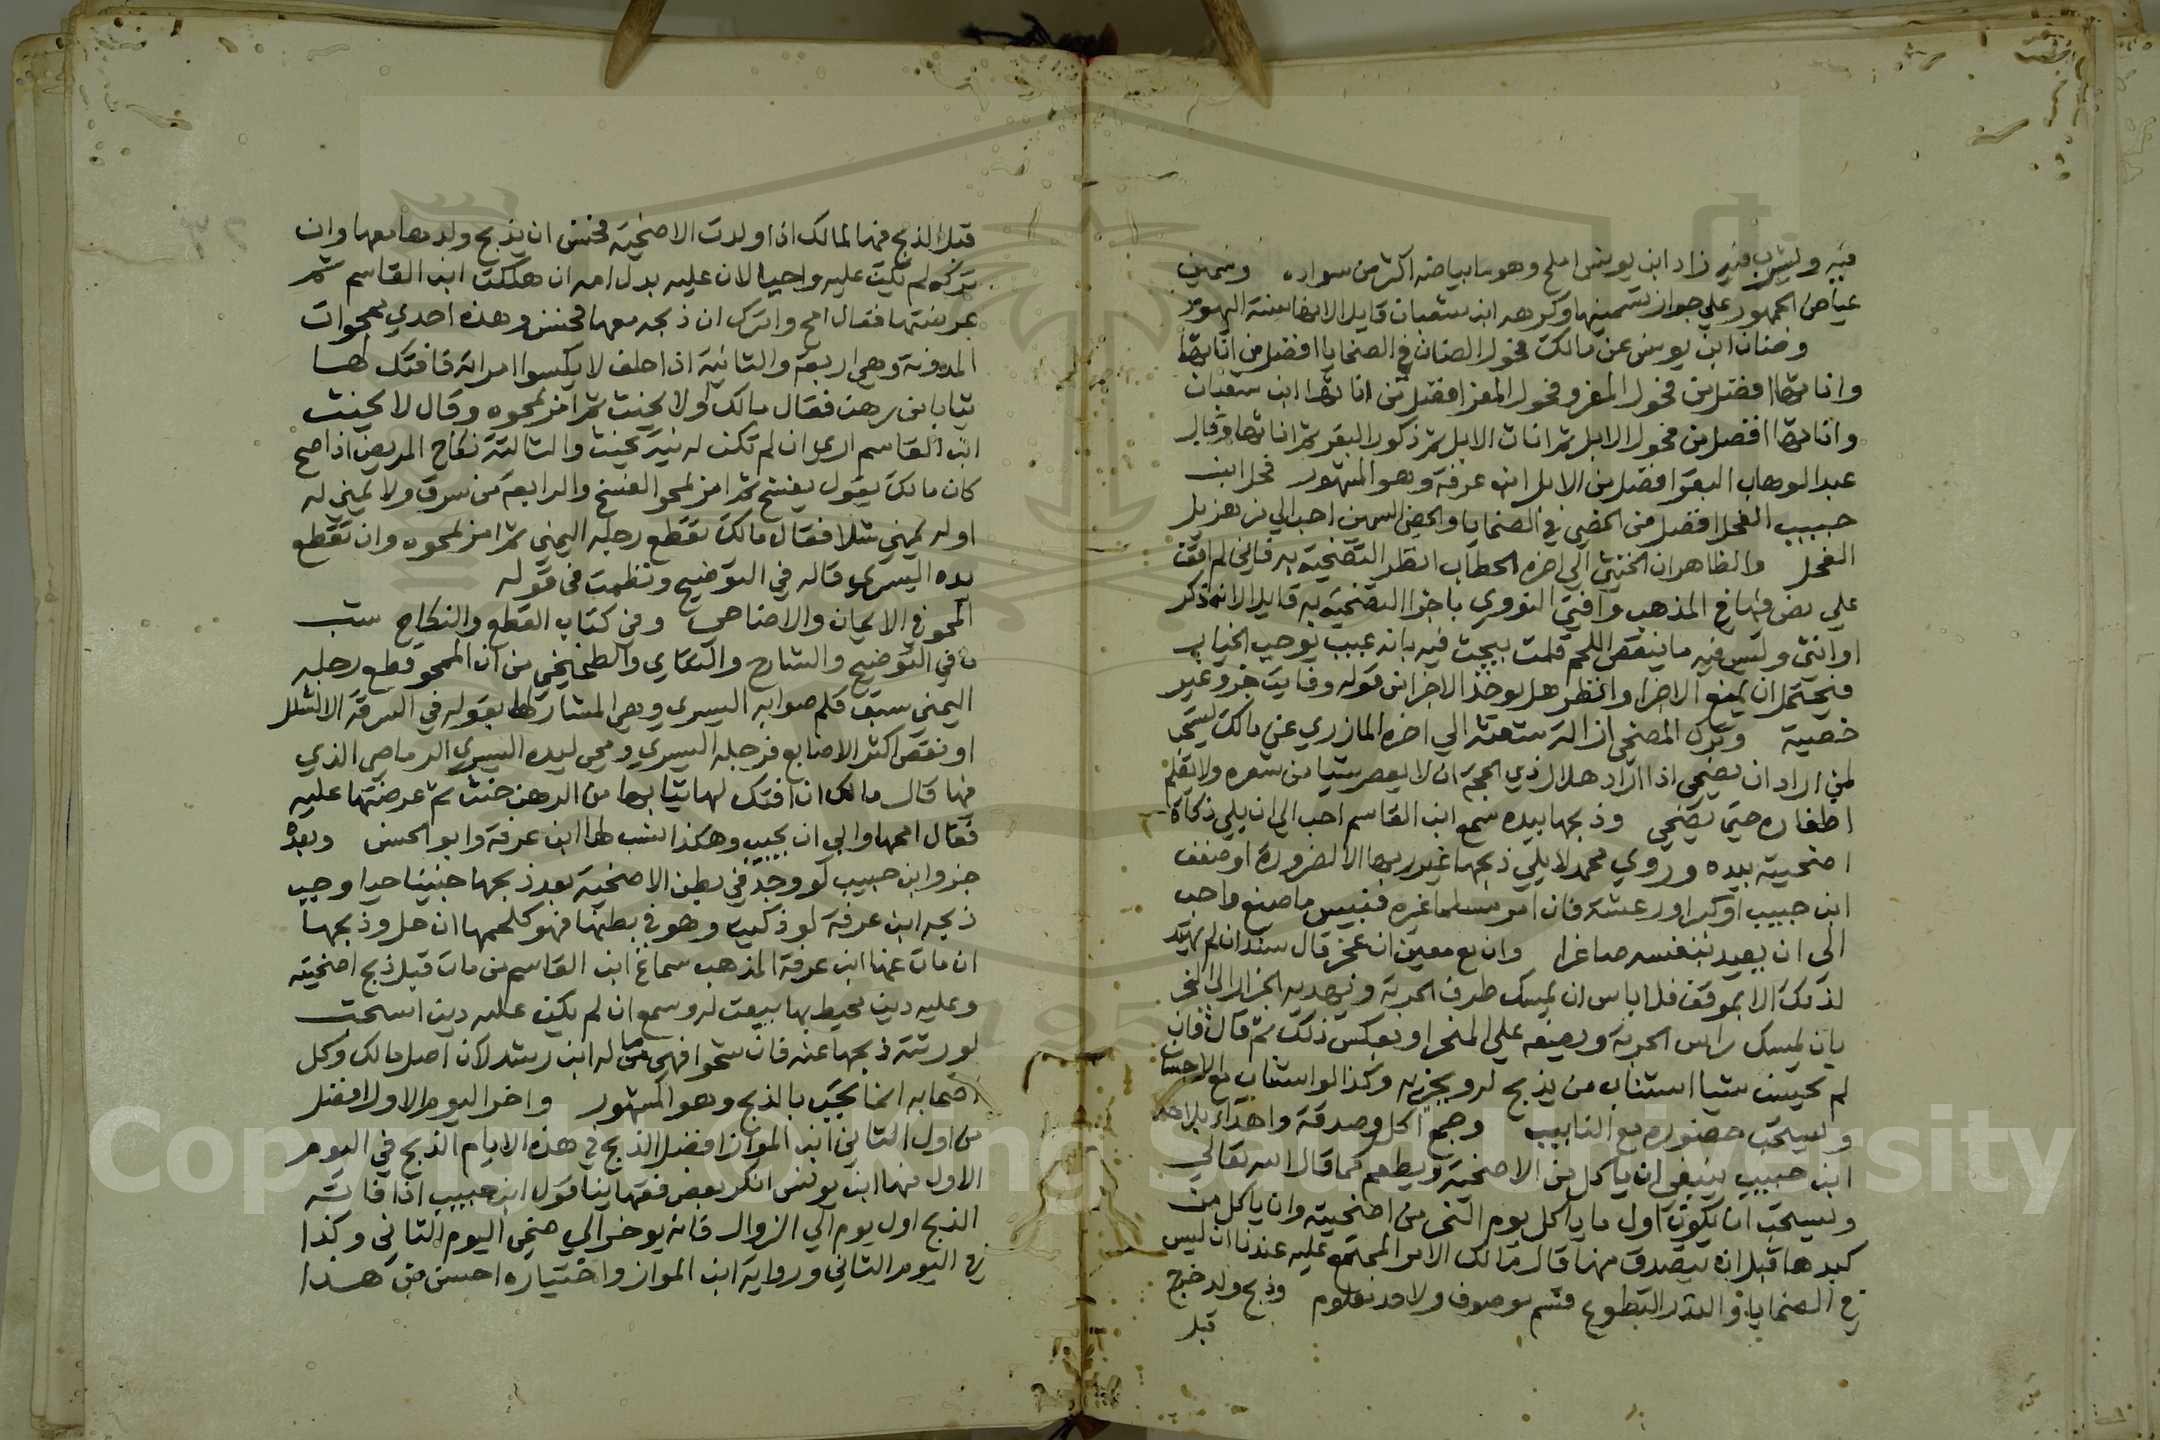 فيه ويشرب فيه زاد ابن يونس املح وهو ما بياضه اكثر من سواده وسمين
عياض الجمهور علي جواز تسمينها وكرهه ابن شعبان قايلا لانها سنة اليهود
وضان ابن يونس عن مالك فحول الضان في الضحايا افضل من اناثها
واناثها افضل من فحول المعز وفحول المعز افضل من اناثها ابن شعبان
واناثها افضل من فحول الابل ثم اناث الابل ثم ذكور البقر ثم اناثها وقال
عبد الوهاب البقر افضل من الابل ابن عرفة وهو المشهور فحل ابن
حبيب الفحل افضل من الخصي في الضحايا والخصي السمين احب الي من هزيل
الفحل والظاهر ان الخنثي الي اخره الحطاب انظر التضحية به فاني لم اقف
علي نص فيها في المذهب وافتي النووي باجزا التضحية به قايلا لانه ذكر
او انثي وليس فيه ما ينقص اللحم قلت يبحث فيه بانه عيب يوجب الخيار
فيحتمل ان يمنع الاجزا وانظر هل يوخذ الاجزا من قوله وفايت جزو غير
خصية وترك المضحي ازالة شعثه الي اخره المازري عن مالك يستحب
لمن اراد ان يضحي اذا اراد هلال ذي الحجة ان لا يقص شيا من شعره ولا يقلم
اظفاره حتي يضحي وذبحها بيده سمع ابن القاسم احب الي ان يلي ذكاة
اضحيته بيده وروي محمد لا يلي ذبحها غير ربها الا لضرورة او ضعف
ابن حبيب او كبر او رعشة فان امر مسلما غيره فبيس ما صنع واحب
الي ان يعيد بنفسه صاغرا وان مع معين ان عجز قال سند ان لم يهتد
لذلك الا بموقف فلا باس ان يمسك طرف الحربة ويهديه الجزار الي النحر
بان يمسك راس الحربة ويضعه علي المنحر او بعكس ذلك ثم قال فان
لم يحسن شيا استناب من يذبح له ويجزيه وكذا لو استناب مع الاحسان
ويستحب حضوره مع النايب وجمع اكل وصدقة واهداء بلا حد
ابن حبيب ينبغي ان ياكل من الاضحية ويطعم كما قال الله تعالي
ويستحب ان يكون اول ما ياكل يوم النحر من اضحيته وان ياكل من
كبدها قبل ان يتصدق منها قال مالك الامر المجتمع عليه عندنا ان ليس
في الضحايا والنذر التطوع قسم موصوف ولا حد معلوم وذبح ولد خرج
قبل
قبل الذبح فيها لمالك اذا ولدت الاضحية فحسن ان يذبح ولدها معها وان
تركه لم يكن عليه واجبا لان عليه بدل امه ان هلكت ابن القاسم ثم
عرضتها فقال امح واترك ان ذبحه معها فحسن وهذه احدي ممحوات
المدونة وهي اربعة والثانية اذا حلف لا يكسوا امراته فافتك لها
ثيابا من رهن فقال مالك اولا يحنث ثم امر بمحوه وقال لا يحنث
ابن القاسم اري ان لم تكن له نية يحنث والثالثة نكاح المريض اذا صح
كان مالك يقول يفسخ ثم امر بمحو الفسخ والرابعة من سرق ولا يمين له
او له يمني شلا فقال مالك تقطع رجله اليمني ثم امر بمحوه وان تقطع
يده اليسري قاله في التوضيح ونظمت في قوله
المحو في الايمان والاضاحي وفي كتاب القطع والنكاح ست
ما في التوضيح والشارح والتتاي والطخيخي من ان الممحو قطع رجله
اليمني سبق قلم صوابه اليسري وهي المشار لها بقوله في السرقة الا لشلل
او نقص اكثر الاصابع فرجله اليسري ومحي ليده اليسري الرماصي الذي
فيها قال مالك ان افتك لها ثيابها من الرهن حنث ثم عرضتها عليه
فقال امحها وابي ان يجيب وهكذا نسب لها ابن عرفة وابو الحسن وبعده
جزو ابن حبيب لو وجد في بطن الاضحية بعد ذبحها جنينا حيا وجب
ذبحه ابن عرفة لو ذكيت وهو في بطنها فهو كلحمها ان حل وذبحها
ان مات عنها ابن عرفة المذهب سماع ابن القاسم من مات قبل ذبح اضحيته
وعليه دين محيط بها بيعت له وسمع ان لم يكن عليه دين استحب
لورثته ذبحها عنه فان شحوا فهي من ماله ابن رشد لان اصل مالك وكل
اصحابه انما يجب بالذبح وهو المشهور واخر اليوم الاول افضل
من اول الثاني ابن المواز افضل الذبح في هذه الايام الذبح في اليوم
الاول منها ابن يونس انكر بعض فقهاينا قول ابن حبيب اذا فاته
الذبح اول يوم الي الزوال فانه يوخر الي ضحي اليوم الثاني وكذا
في اليوم الثاني ورواية ابن المواز واختياره احسن من هذا
Copyright © King Saud University